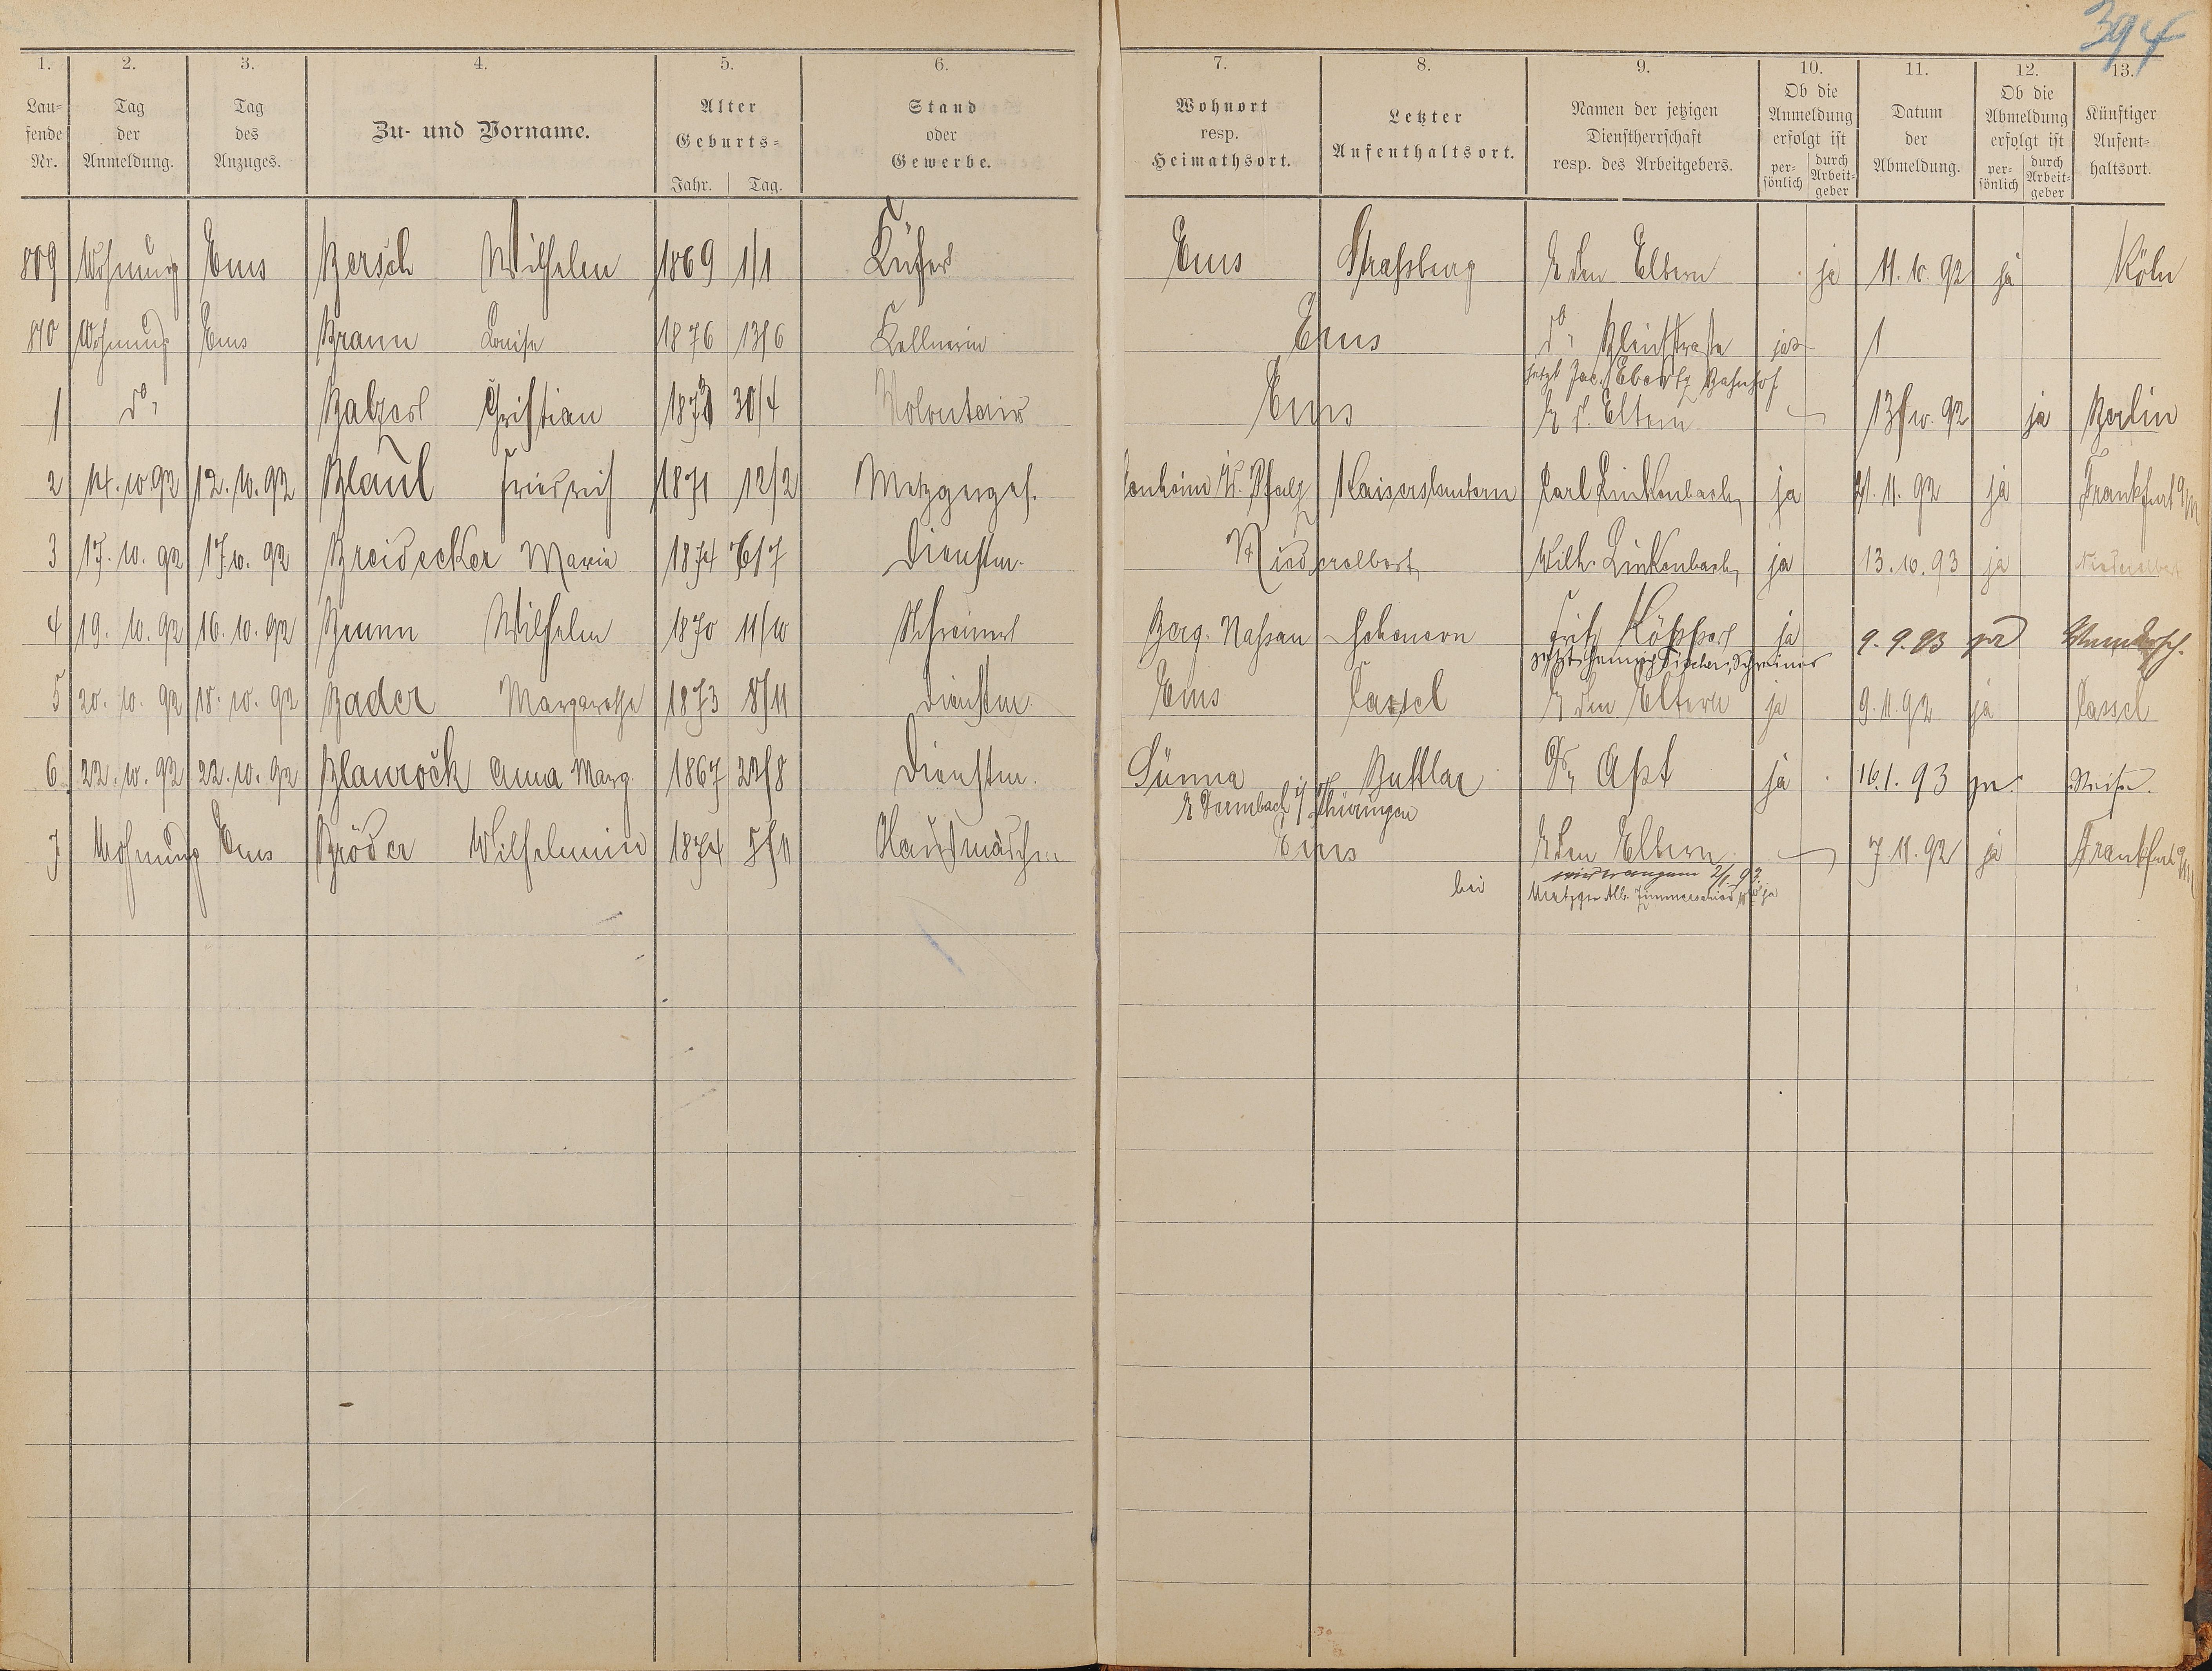 394
1. 2. 3. 4. 5. 6. 7. 8. 9. 10. 11. 12. 13.
Lau-
fende
Nr.
Tag
der
Anmeldung.
Tag
des
Anzuges.
Zu- und Vorname.
Alter
Geburts-
Jahr. Tag.
Stand
oder
Gewerbe.
Wohnort
resp.
Heimathsort.
Letzter
Aufenthaltsort.
Namen der jetzigen
Dienstherrschaft
resp. des Arbeitgebers.
Ob die
Anmeldung
erfolgt ist
per-
sönlich
durch
Arbeit-
geber
Datum
der
Abmeldung.
Ob die
Abmeldung
erfolgt ist
per-
sönlich
durch
Arbeit-
geber
Künftiger
Aufent-
haltsort.
809 Wohnung Ems Bersch Wilhelm 1869 1/1 Küfer Ems Straßburg b den Eltern ja 11.10.92 ja Köln
810 Wohnung Ems Braun Louise 1876 13/6 Kellnerin Ems do, Bleichstraße ja
jetzt Jac. Ebertz Bahnhof
1 do, Balzer Christian 30/4 Volontair Ems b d. Eltern 13/10.92 ja Berlin
2 14.10.92 12.10.92 Blaul Friedrich 1871 12/2 Metzgerges. Pfalz Kaiserslautern Carl Linkenbach ja 21.11.92 ja Frankfurt a/M
3 17.10.92 17.10.92 Breidecker Marie 1874 Dienstm. Niederelbert Wilh. Linkenbach ja 13.10.93 ja Niederelbert
4 19.10.92 16.10.92 Brunn Wilhelm 1870 11/10 Schreiner Berg. Nassau Fritz ja 9.9.93
jetzt Heinrich Fischer, Schreiner
5 20.10.92 18.10.92 Bader Margarethe 1873 8/11 Dienstm. Ems Cassel b den Eltern ja 9.11.92 ja Cassel
6 22.10.92 22.10.92 Blaurock Anna Marg. 1867 22/8 Dienstm. Sünna Buttlar Dr, Apt ja 16.1.93 Reise.
b Dermbach i/ Thüringen
7 Wohnung Ems Bröder Wilhelmine 1874 5/11 Hausmädchen Ems b den Eltern 7.11.92 ja Frankfurt a/M
2/1 93
bei Metzger Alb. Zimmerschied ja